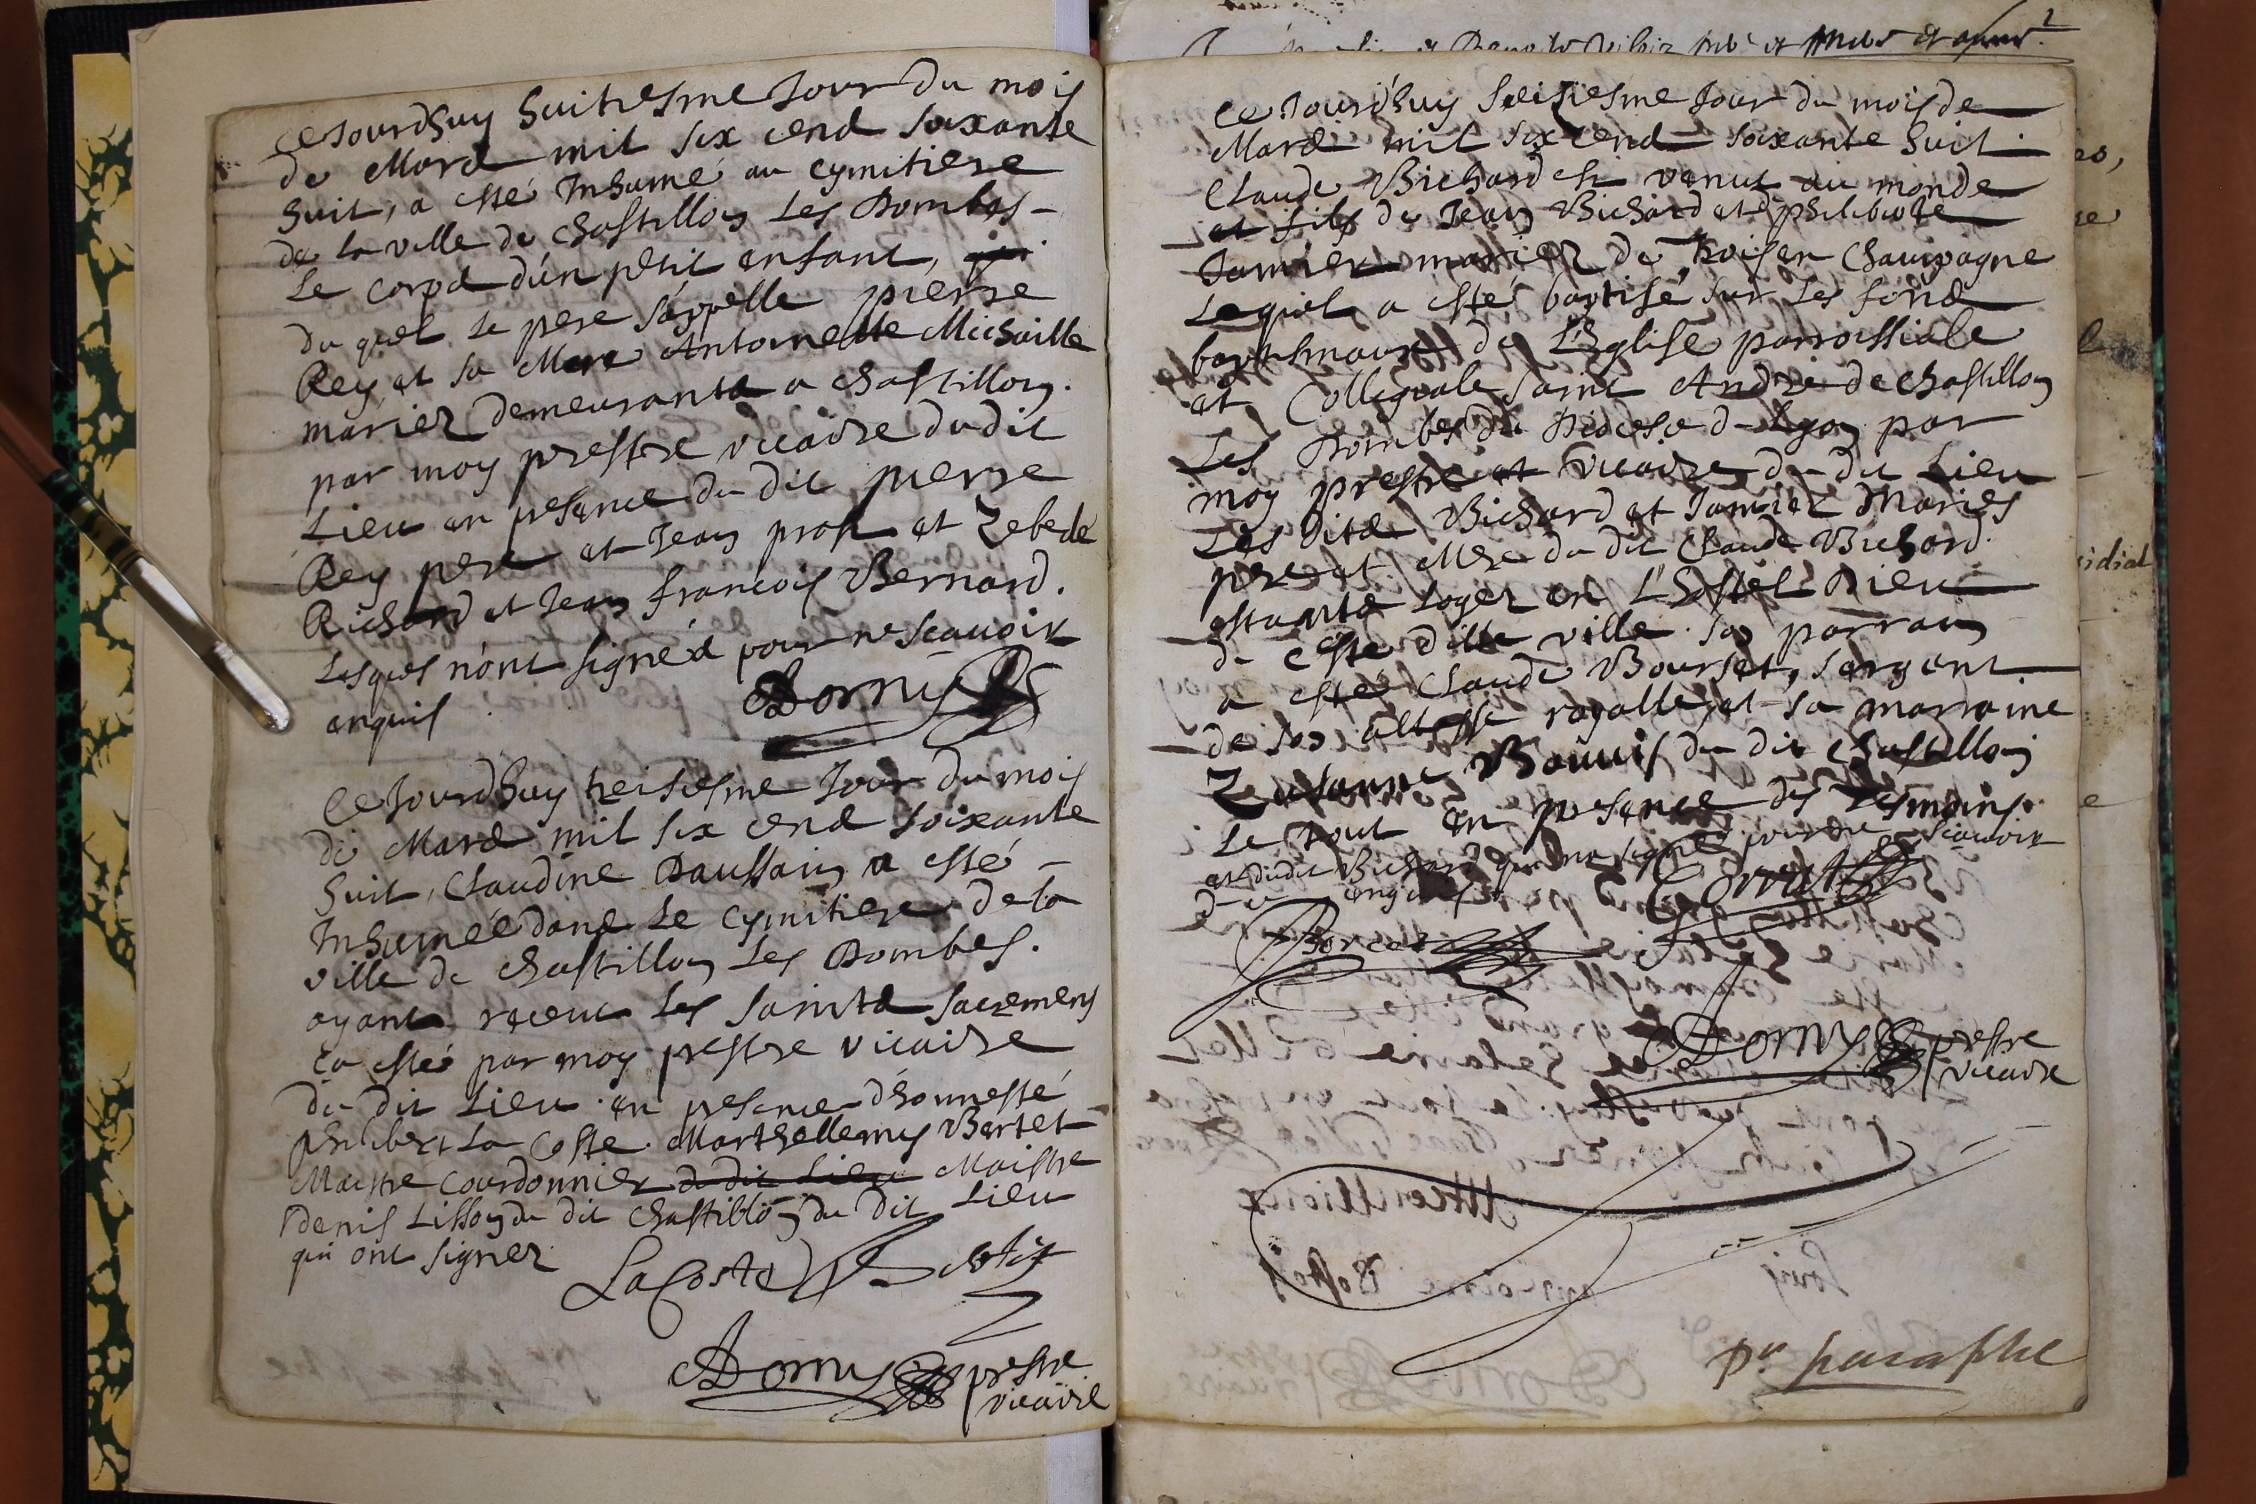 Ce Jourdhuy huitiesme Jour du mois
de Mard mil six cend soixante
huit, a esté Inhumé au cymitiere
de la ville de Chastillon Les Dombes -
Le corpd dún petit enfant, qui
du quel le pere sáppelle pierre
Rey, et sa Mere Antoinette Michaille
mariez demeurantd a Chastillon.
par moy prestre vicaire du dit
Lieu en presence du dit pierre
Rey pere et Jean prost et Zebede
Richard et Jean francois Bernard.
Lesques nónt signed pour ne scauoir
enquis
Dornis
Ce Jourdhuy treisiesme Jour du mois
de Mard mil six cend soixante
huit, Claudine Daussain a esté -
Inhumée dand Le Cymitiere de la
ville de Chastillon Les Dombes.
ayant receu Les saintd sacremens
Ca esté par moy prestre vicaire
du dit Lieu en presence dhonnesté
philibert La Coste Marthellemy Bertet
Maistre Courdonnier du dit Lieu Maistre
denis Lisson du dit Chastillon du dit Lieu
qui ont signez
LaCoste
Dornis prestre
vicaire
Ce Jourdhuy seiziesme Jour du mois de
Mard mil six cend soixante huit
Claude Bichard est venut au monde
et fils de Jean Bichard et de philiberte
Janvier mariez de Troisen Champagne
Lequel a esté baptisé sur Les fond
baptismaux de LÉglise parroissiale
et Collegiale saint André de Chastillon
Les Dombes du Diocese de Lyon par
moy prestre et vicaire du dit Lieu
Les ditd Bichard et Janvier Mariés
pere et Mere du dit Claude Bichard
estantd logez en LHostel Dieu
de ceste ditte ville. son parrain
a esté Claude Bourset, sergent
de son altesse royalle, et sa marraine
Zusanne Bouvis du dit Chastillon
Le tout en presence des tesmoins
et du dit Bichard qui na signé pour ne scauoir
de ce enquis
Dornis prestre
vicaire
pr paraphe